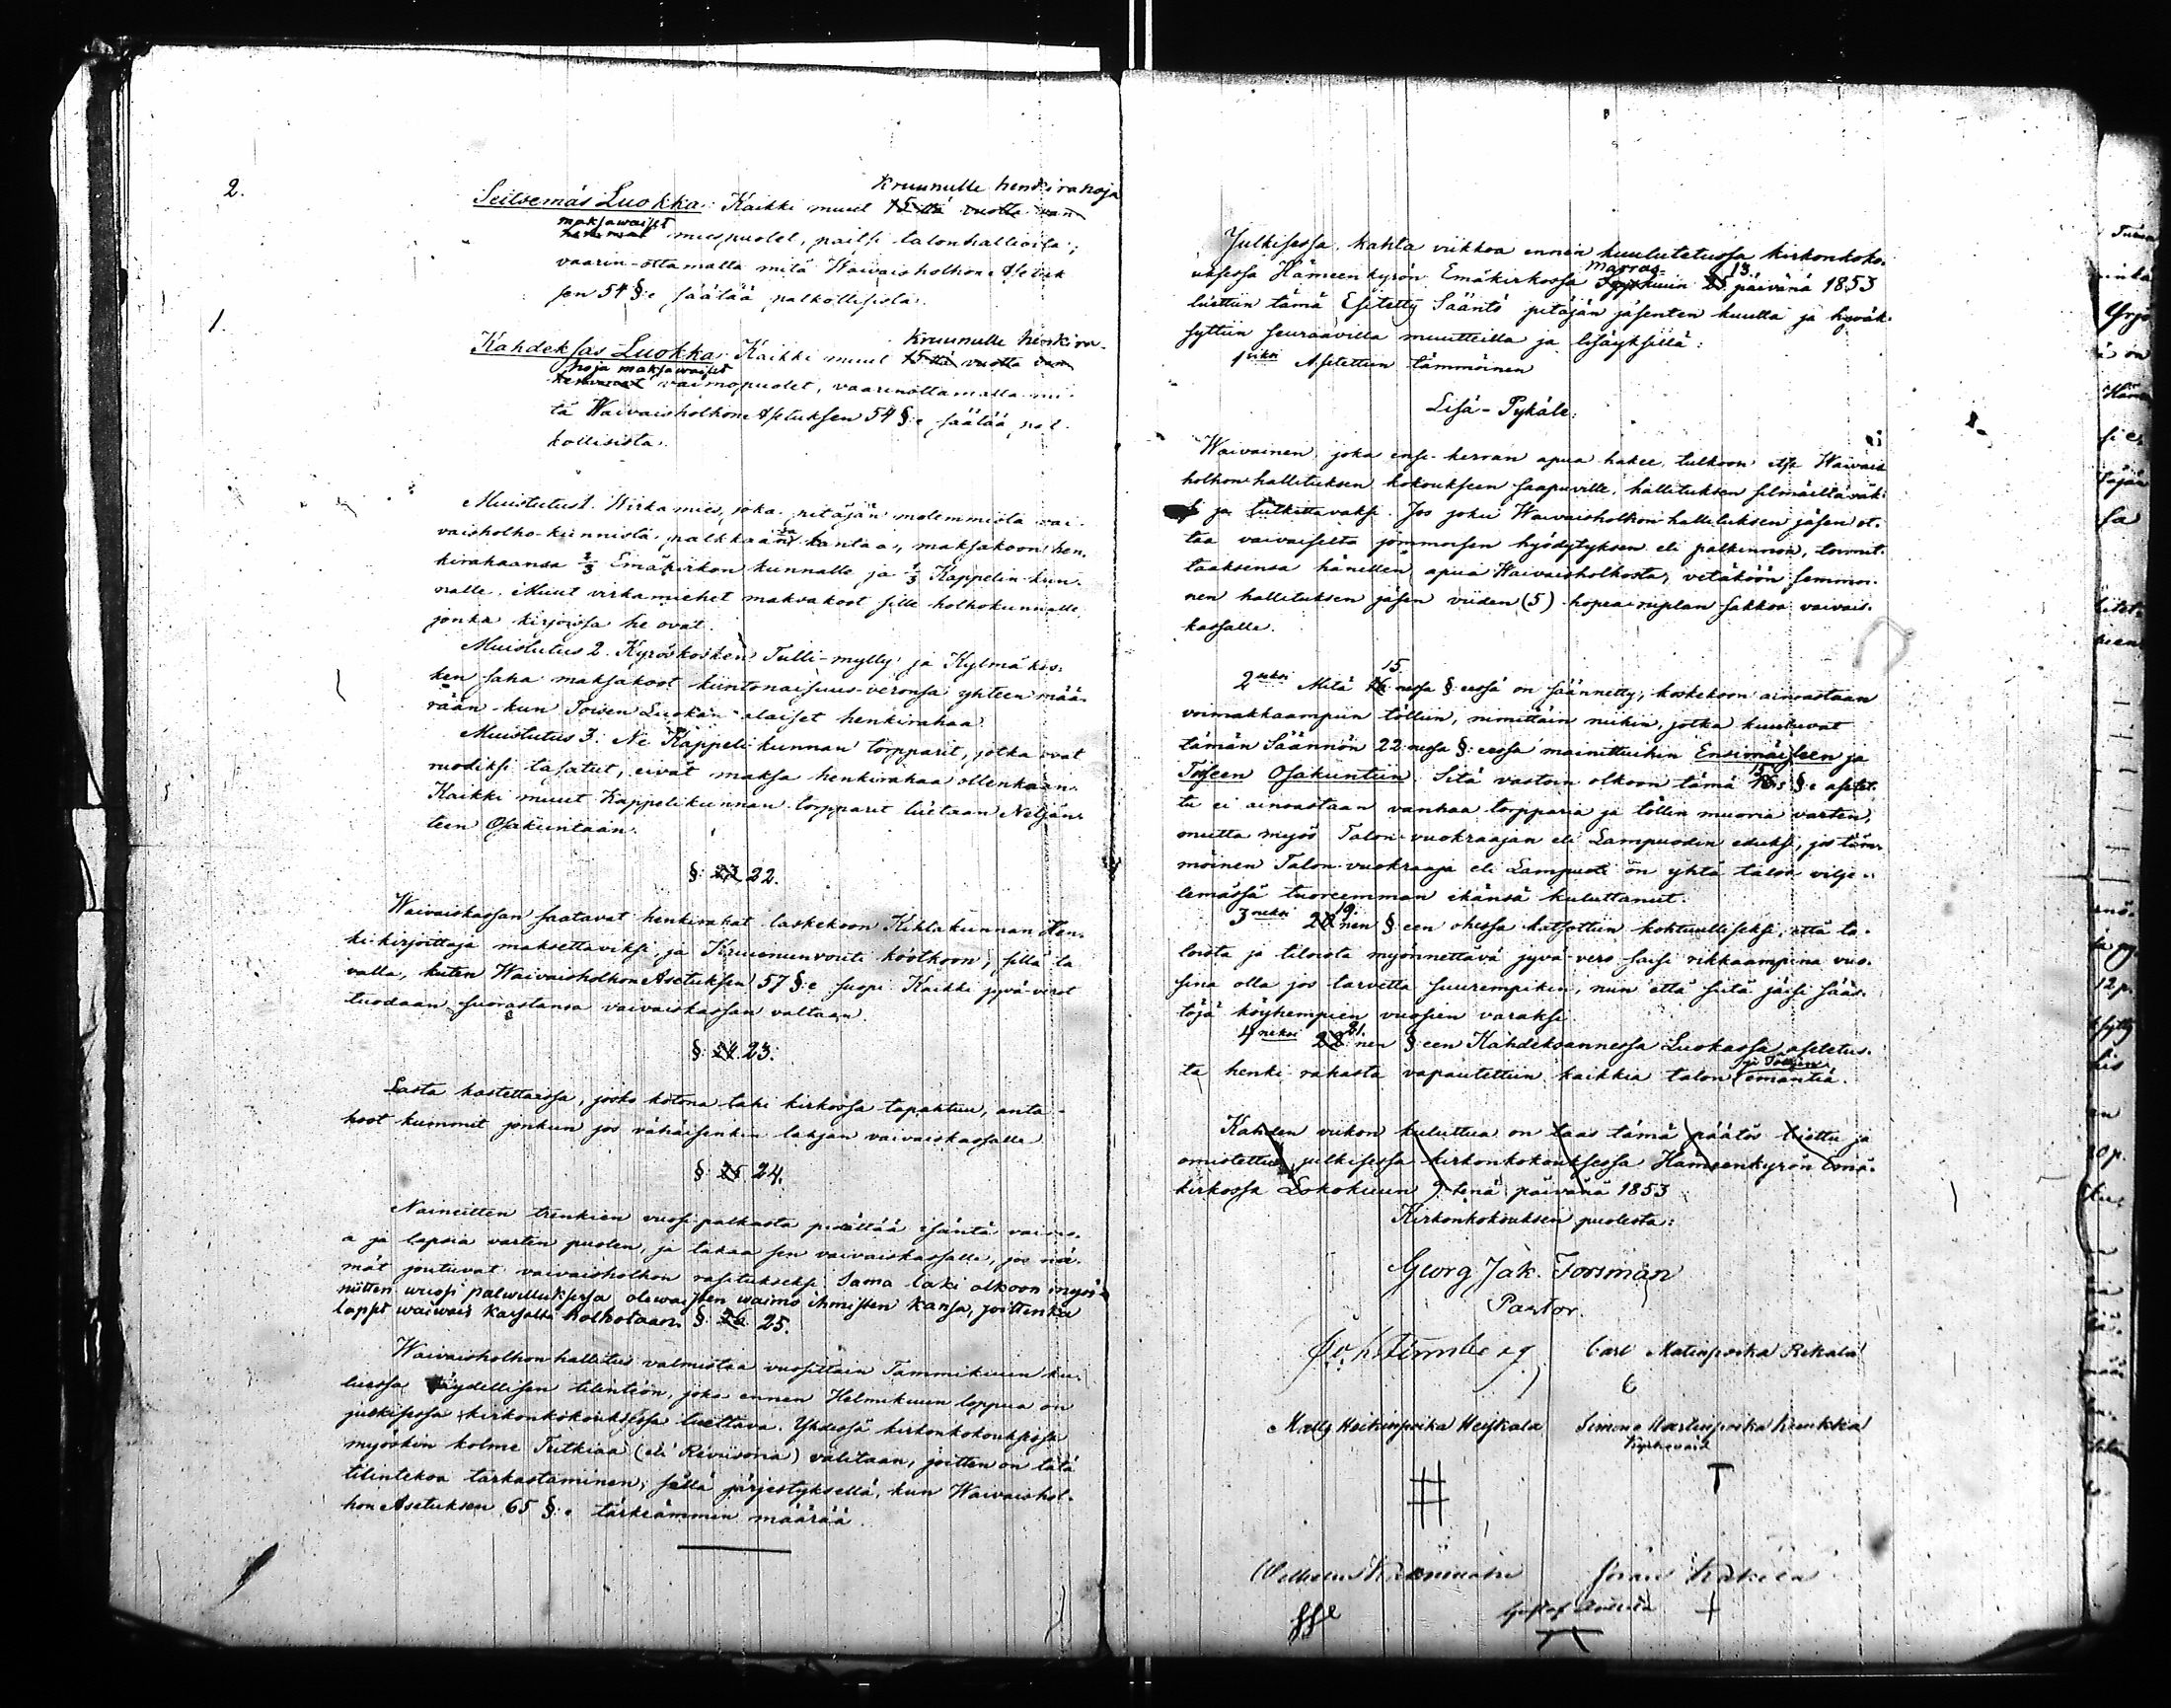 2.
Kruunulle henkirahoja
Seitsemäs Luokka: Kaikki muut 15 ttä vuotta van
maksawaiset
hemmat miespuolet, paitsi talonhaltioita;
vaarin-ottamalla mitä Waivaisholhon Asetuk
sen 54 §:e säätää palkollisista.
1.
Kruunulle henkira-
Kahdeksas Luokka: Kaikki muut 15 ttä vuotta van
hoja maksawaiset
hemmat vaimopuolet, vaarinottamalla mi-
tä Waivaisholhon Asetuksen 54 §:e säätää pal-
kollisista.
Muistutus 1. Wirkamies, joka pitäjän molemmista vai-
vaisholho-kunnista palkkaansa kantaa, maksakoon hen-
kirahaansa 2/3 Emäkirkon kunnalle ja 1/3 Kappelin kun-
nalle. Muut virkamiehet maksakoot sille holhokunnalle,
jonka kirjoissa he ovat.
Muistutus 2. Kyröskosken Tulli-mylly ja Kylmäkos-
ken saha maksakoot kuntonaisuus-veronsa yhteen mää-
rään kun Toisen Luokan alaiset henkirahaa.
Muistutus 3. Ne Kappelikunnan torpparit, jotka ovat
ruodiksi tasatut, eivät maksa henkirahaa ollenkaan.
Kaikki muut Kappelikunnan torpparit luetaan Neljän-
teen Osakuntaan.
§: 23 22.
Waivaiskassan saatavat henkirahat laskekoon Kihlakunnan Hen-
kikirjoittaja maksettaviksi ja Kruununvouti koótkoon, sillä ta
valla, kuten Waivaisholhon Asetuksen 57 §:e suopi. Kaikki jyvä-verot
tuodaan suorastansa vaivaiskassan valtaan.
§: 24 23.
Lasta kastettaissa, josko kotona tahi kirkossa tapahtuu, anta-
koot kummit jonkun jos vähäisenkin lahjan vaivaiskassalle.
§: 25 24.
Naineitten trenkien vuosi-palkasta pidättää isäntä vaimo-
a ja lapsia varten puolen, ja takaa sen vaivaiskassalle, jos nä-
mät joutuvat vaivaisholhon rasitukseksi. Sama laki olkoon myös
niitten wuosi palwelluksessa olewaisten waimo ihmisten kansa, joittenka
lapset waiwais kassalta holhotaan. §: 26 25.
Waivaisholhon hallitus valmistaa vuosittain Tammikuun ku-
luessa täydellisen tilinteon, joka ennen Helmikuun loppua on
julkisessa kirkonkokouksessa luettava. Yhdessä kirkonkokouksessa
myöskin kolme Tutkiaa (eli Reviisoria) valitaan, joitten on tätä
tilintekoa tarkastaminen, sillä järjestyksellä, kun Waivaishol-
hon Asetuksen 65 §:e tarkemmin määrää.
Julkisessa, kahta viikkoa ennen kuulutetussa kirkonkoko-
uksessa Hämeenkyrön Emäkirkossa kuun 13. päivänä 1853
Marras-
luettiin tämä Esitetty Sääntö pitäjän jäsenten kuulla ja hyväk-
syttiin seuraavilla muutteilla ja lisäyksillä:
1 siksi Asetettiin tämmöinen
Lisä-Pykäle:
Waivainen, joka ensi-kerran apua hakee, tulkoon itse Waivais
holhon hallituksen kokoukseen saapuville, hallituksen silmäiltäväk-
si ja tutkittavaksi. Jos joku Waivaisholhon hallituksen jäsen ot-
taa vaivaiselta jommoisen hyödytyksen eli palkinnon, toimit-
taaksensa hänellen apua Waivaisholhosta, vetäköön semmoi-
nen hallituksen jäsen viiden (5) hopea ruplan sakkoa vaivais-
kassalle.
15
2 seksi Mitä 16 nessa §:eessä on säännetty, koskekoon ainoastaan
voimakkaampiin tölliin, nimittäin niihin, jotka kuuluvat
tämän Säännön 22:nessa §:eessa mainittuihin Ensimäiseen ja
Toiseen Osakuntiin. Sitä vastoin olkoon tämä 15 s §:e asetet-
tu ei ainoastaan vanhaa torpparia ja töllin muoria varten,
mutta myös Talon vuokraajan eli Lampuodin eduksi, jos täm-
möinen Talon vuokraaja eli Lampuoti on yhtä taloa vilje-
lemässä tuoreemman ikänsä kuluttanut.
19
3 neksi 20 nen §:een ohessa katsottiin kohtuulliseksi, että ta-
loista ja tiloista myönnettävä jyvä-vero saisi rikkaampina vuo-
sina olla jos tarvetta suurempikin, niin että siitä jäisi sääs-
töjä köyhempien vuosien varaksi.
21.
4 neksi 22 nen §:een Kahdeksannessa Luokassa asetetus-
ta henki-rahasta vapautettiin kaikkia talon emäntiä.
ja Töllin
Kahden viikon kuluttua on taas tämä päätös luettu ja
omistettu julkisessa kirkonkokouksessa Hämeenkyrön Emä-
kirkossa Lokakuun 9:tenä päivänä 1853
Kirkonkokouksen puolesta:
Georg Jak. Forsman
Pastor.
Carl Matinpoika Rekala
Matts Heikinpoika Heiskala Simmo Martinpoika Kunkka
Kyrkovärd
Gustaf